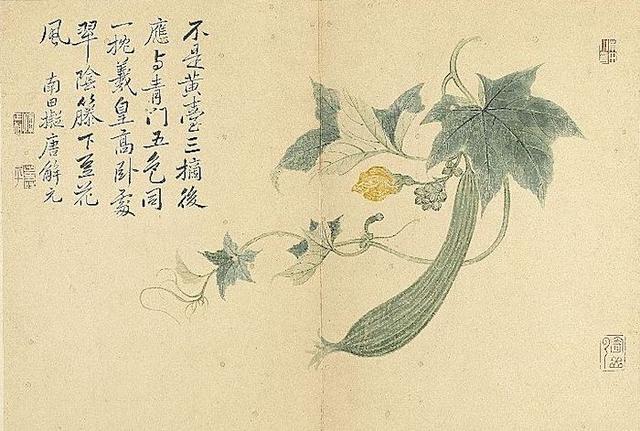 不是黃臺三摘後
應与青门五色同
一枕羲皇高卧處
翠陰籐下豆花
風
南田擬唐解元